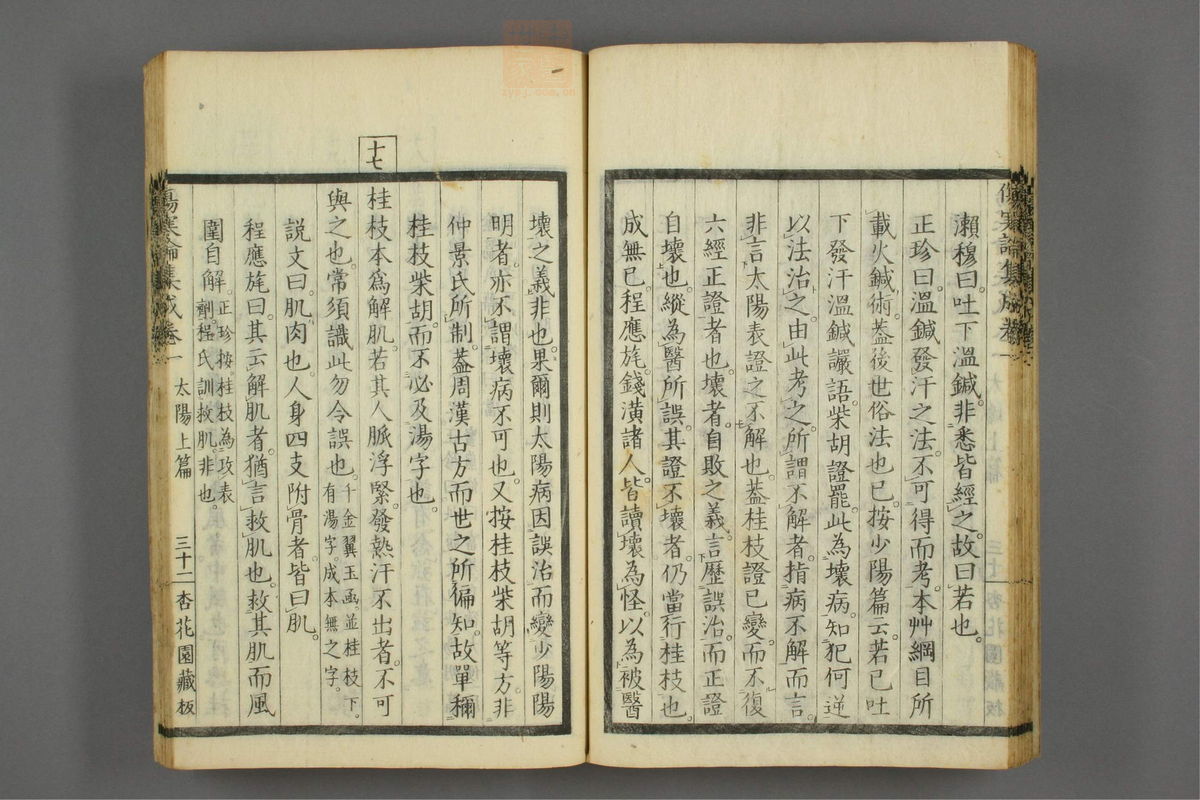 瀨穆曰。吐下溫鍼。非悉皆經之。故曰若也。
正珍曰。溫鍼發汗之法。不可得而考。本艸綱目所
載火鍼術。蓋後世俗法也已。按少陽篇云。若已吐
下發汗溫鍼讝語。柴胡證罷。此為壞病。知犯何逆
以法治之。由此考之。所謂不解者。指病不解而言。
非言太陽表證之不解也。蓋桂枝證已變。而不復
六經正證者也。壞者。自敗之義。言歷誤治。而正證
自壞也。縱為醫所誤。其證不壞者。仍當行桂枝也。
成無已。程應旄。錢潢諸人。皆讀壞為怪。以為被醫
傷寒論集成卷一
壞之義。非也。果爾則太陽病因誤治而變少陽陽
明者。亦不謂壞病不可也。又按桂枝柴胡等方。非
仲景氏所制。蓋周漢古方而世之所徧知。故單稱
桂枝柴胡。而不必及湯字也。
十七
桂枝本爲解肌。若其人脈浮緊。發熱汗不出者。不可
與之也。常須識此勿令誤也。千金翼玉函。並桂枝下。有湯字。成本無之字。
説文曰。肌肉也。人身四支附骨者。皆曰肌。
程應旄曰。其云解肌者。猶言救肌也。救其肌而風
圍自解。正珍按。桂枝為攻表劑。程氏訓救肌。非也。
傷寒論集成卷一 太陽上篇 三十二 杏花園藏板